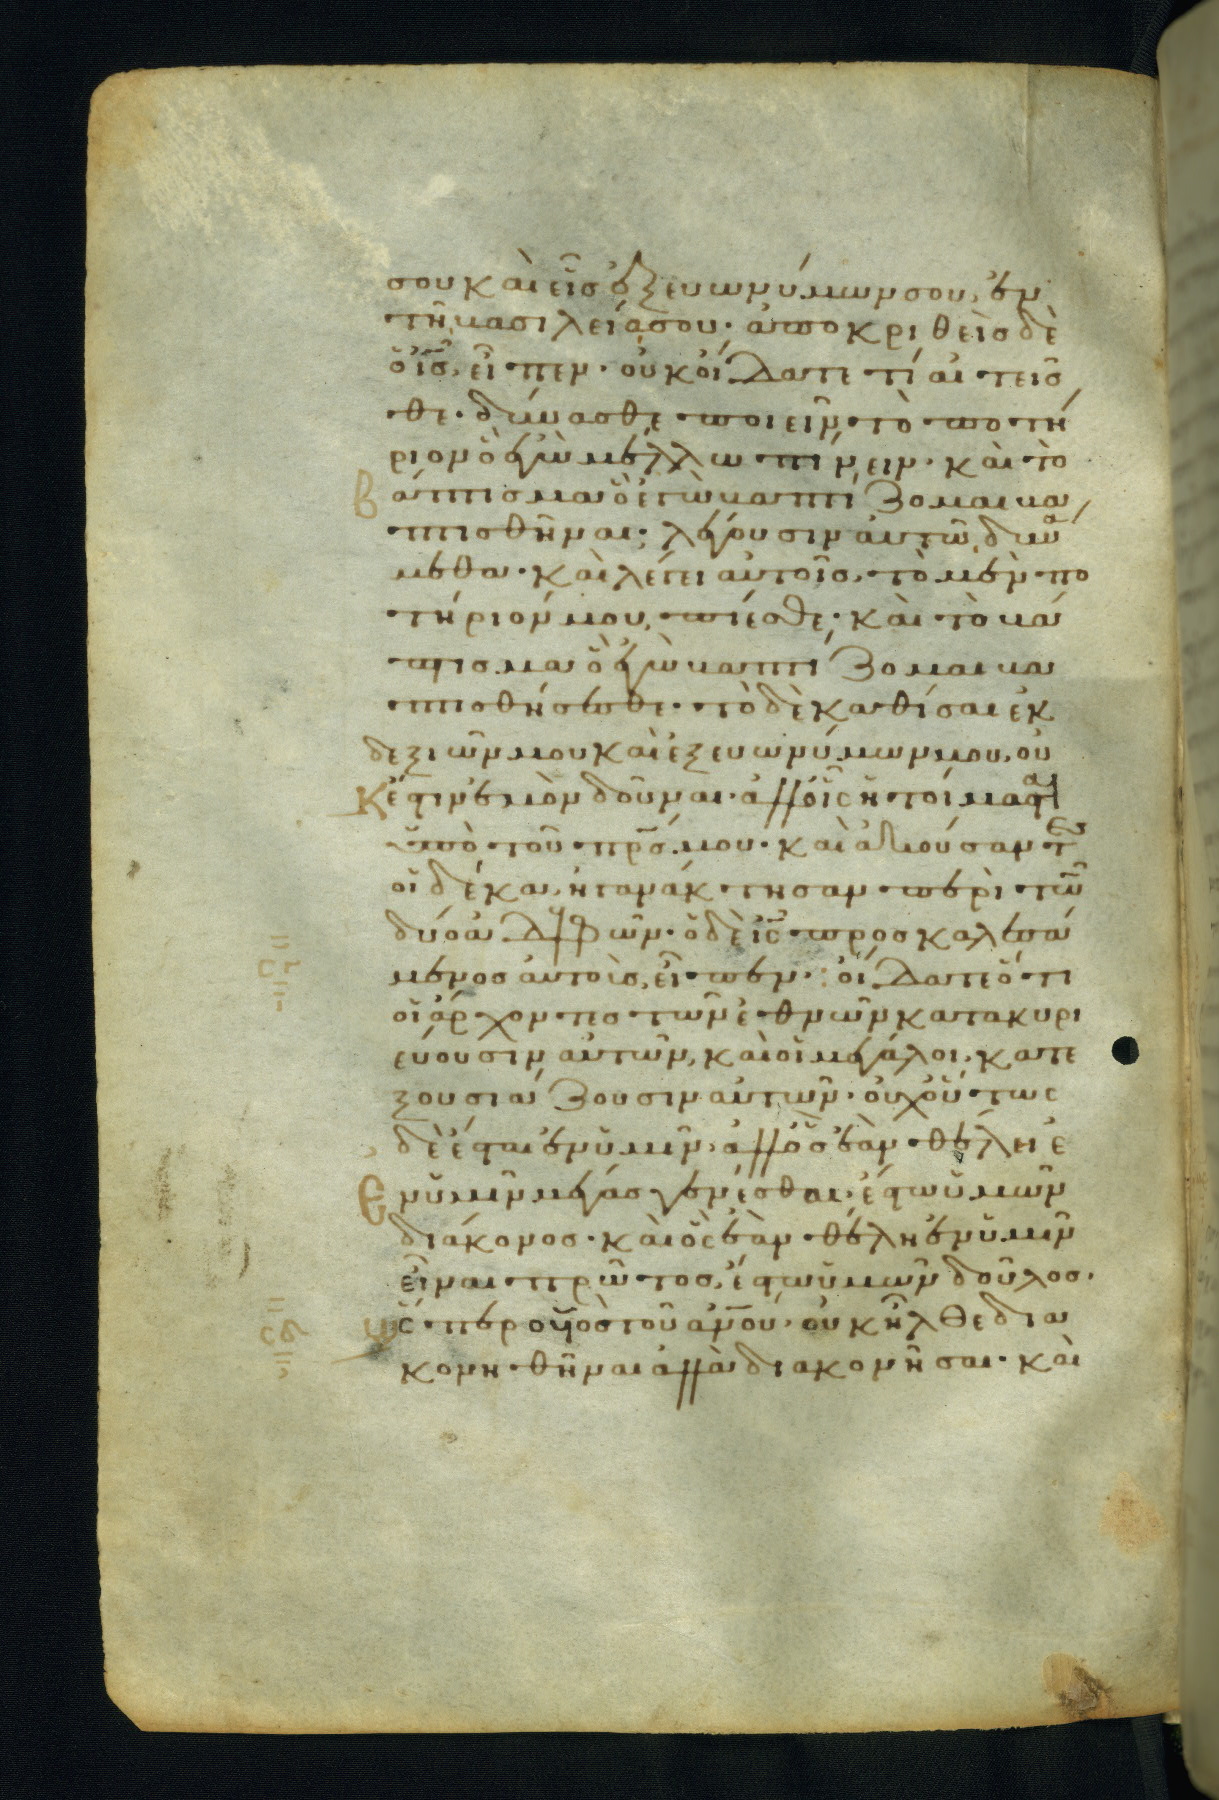 σου καὶ εἷς ἐξ εὐωνύμων σου, ἐν
τῇ βασιλείᾳ σου· ἀποκριθεὶς δὲ
ὁ ις, εἶπεν· οὐκ οἴδατε τί αἰτεῖσ
θε· δύνασθε ποιεῖν τὸ ποτή
ριον ὃ ἐγὼ μέλλω πίνειν· καὶ τὸ
βάπτισμα ὃ ἐγὼ βαπτίζομαι βα
πτισθῆναι· λέγουσιν αὐτῷ, δυνά
μεθα· καὶ λέγει αὐτοῖς, τὸ μὲν πο
τήριόν μου, πίεσθε· καὶ τὸ βά
πτισμα ὃ ἐγὼ βαπτίζομαι βα
πτισθήσεσθε· τὸ δὲ καθίσαι ἐκ
δεξιῶν μου καὶ ἐξ εὐωνύμων μου, οὐ
κ ἔστιν ἐμὸν δοῦναι· ἀλλ' οἷς ἡτοίμασται
ὑπὸ τοῦ πρς μου· καὶ ἀκούσαντες
οἱ δέκα, ἠγανάκτησαν περὶ τῶν
δύο ἀδλφῶν· ὁ δὲ ις προσκαλεσά
μενος αὐτοὺς, εἶπεν· οἴδατε ὅτι
οἱ ἄρχοντες τῶν ἐθνῶν κατακυρι
εύουσιν αὐτῶν, καὶ οἱ μεγάλοι, κατε
ξουσιάζουσιν αὐτῶν· οὐχ οὕτως
δὲ ἔσται ἐν ὑμῖν, ἀλλ' ὃς ἐὰν θέλει ἐ
ν ὑμῖν μέγας γενέσθαι, ἔστω ὑμῶν
διάκονος· καὶ ὃς ἐὰν θέλη ἐν ὑμῖν
εἶναι πρῶτος, ἔστω ὑμῶν δοῦλος·
ὥσπερ ὁ υἱὸς τοῦ ἀνου, οὐκ ἦλθε δια
κονηθῆναι ἀλλὰ διακονῆσαι· καὶ